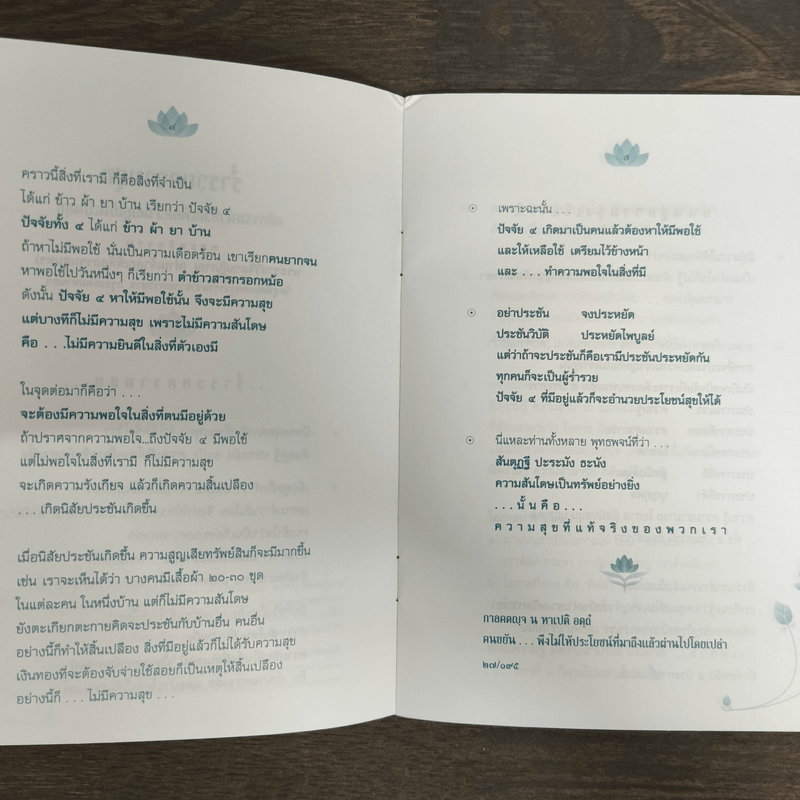 ๔
คราวนี้สิ่งที่เรามี ก็คือสิ่งที่จำเป็น
ได้แก่ ข้าว ผ้า ยา บ้าน เรียกว่า ปัจจัย ๔
ปัจจัยทั้ง ๔ ได้แก่ ข้าว ผ้า ยา บ้าน
ถ้าหาไม่มีพอใช้ นั่นเป็นความเดือดร้อน เขาเรียกคนยากจน
หาพอใช้ไปวันหนึ่งๆ ก็เรียกว่า ตำข้าวสารกรอกหม้อ
ดังนั้น ปัจจัย ๔ หาให้มีพอใช้นั้น จึงจะมีความสุข
แต่บางทีก็ไม่มีความสุข เพราะไม่มีความสันโดษ
คือ . . .ไม่มีความยินดีในสิ่งที่ตัวเองมี
ในจุดต่อมาก็คือว่า . . .
จะต้องมีความพอใจในสิ่งที่ตนมีอยู่ด้วย
ถ้าปราศจากความพอใจ...ถึงปัจจัย ๔ มีพอใช้
แต่ไม่พอใจในสิ่งที่เรามี ก็ไม่มีความสุข
จะเกิดความรังเกียจ แล้วก็เกิดความสิ้นเปลือง
. . . เกิดนิสัยประชันเกิดขึ้น
เมื่อนิสัยประชันเกิดขึ้น ความสูญเสียทรัพย์สินก็จะมีมากขึ้น
เช่น เราจะเห็นได้ว่า บางคนมีเสื้อผ้า ๒๐-๓๐ ชุด
ในแต่ละคน ในหนึ่งบ้าน แต่ก็ไม่มีความสันโดษ
ยังตะเกียกตะกายคิดจะประชันกับบ้านอื่น คนอื่น
อย่างนี้ก็ทำให้สิ้นเปลือง สิ่งที่มีอยู่แล้วก็ไม่ได้รับความสุข
เงินทองที่จะต้องจับจ่ายใช้สอยก็เป็นเหตุให้สิ้นเปลือง
อย่างนี้ก็ . . . ไม่มีความสุข . . .
๕
เพราะฉะนั้น . . .
ปัจจัย ๔ เกิดมาเป็นคนแล้วต้องหาให้มีพอใช้
และให้เหลือใช้ เตรียมไว้ข้างหน้า
และ . . . ทำความพอใจในสิ่งที่มี
อย่าประชัน จงประหยัด
ประชันวิบัติ ประหยัดไพบูลย์
แต่ว่าถ้าจะประชันก็คือเรามีประชันประหยัดกัน
ทุกคนก็จะเป็นผู้ร่ำรวย
ปัจจัย ๔ ที่มีอยู่แล้วก็จะอำนวยประโยชน์สุขให้ได้
นี่แหละท่านทั้งหลาย พุทธพจน์ที่ว่า . . .
สันตุฏฐี ปะระมัง ธะนัง
ความสันโดษเป็นทรัพย์อย่างยิ่ง
. . . นั้ น คื อ . . .
ค ว า ม สุ ข ที่ แ ท้ จ ริ ง ข อ ง พ ว ก เ ร า
กาลคตญฺจ น หาเปติ อตฺถํ
คนขยัน . . . พึงไม่ให้ประโยชน์ที่มาถึงแล้วผ่านไปโดยเปล่า
๒๗/๐๙๕